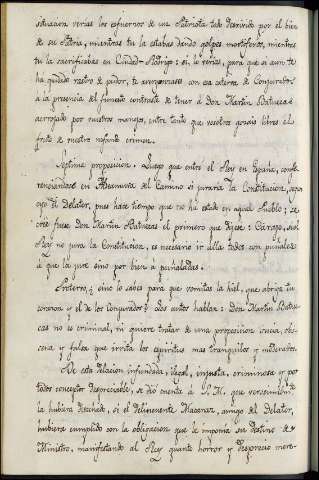 situacion verias los esfuerzos de un Patriota todo desvivido por el bien
de su Patria, mientras tu la estabas dando golpes mortiferos, mientras
tu la sacrificabas en Ciudad-Rodrigo: si, verias, para que si aun te
ha quedado rastro de pudor, te avergonzases con esa caterva de Conjurados
á la presencia del funesto contraste de tener á Don Martin Batuecas
arropado por vuestros manejos, entre tanto que vosotros gozais libres el
fruto de vuestro nefando crimen.
Septima proposicion. Luego que entró el Rey en España, confe
renciandose en del Camino si juraria la Constitucion, supo
que el Delator, pues hace tiempo que no há estado en aquel Pueblo; se
cree fuese Don Martin Batuecas el primero que dijese: Carajo, si el
Rey no jura la Constitucion, es necesario ir allá todos con puñales
á que la jure sino por bien á puñaladas.
Protervo, ¿sino lo sabes para que vomitas la hiel, que abriga tu
corazon y el de los conjurados? Los autos hablan: Don Martin Batue
cas no es criminal, ni quiere tratar de una proposicion sucia, obs-
cena y falsa que irrita los espiritus mas tranquilos y moderados.
De esta delacion infundada, ilegal, injusta, criminosa y por
todos conceptos despreciable, se dió cuenta á S. M. que
la hubiera desechado, si el delincuente Macanaz, amigo del Delator,
hubiere cumplido con la obligacion que le imponia su destino de
Ministro, manifestando al Rey quanto horror y desprecio mere-